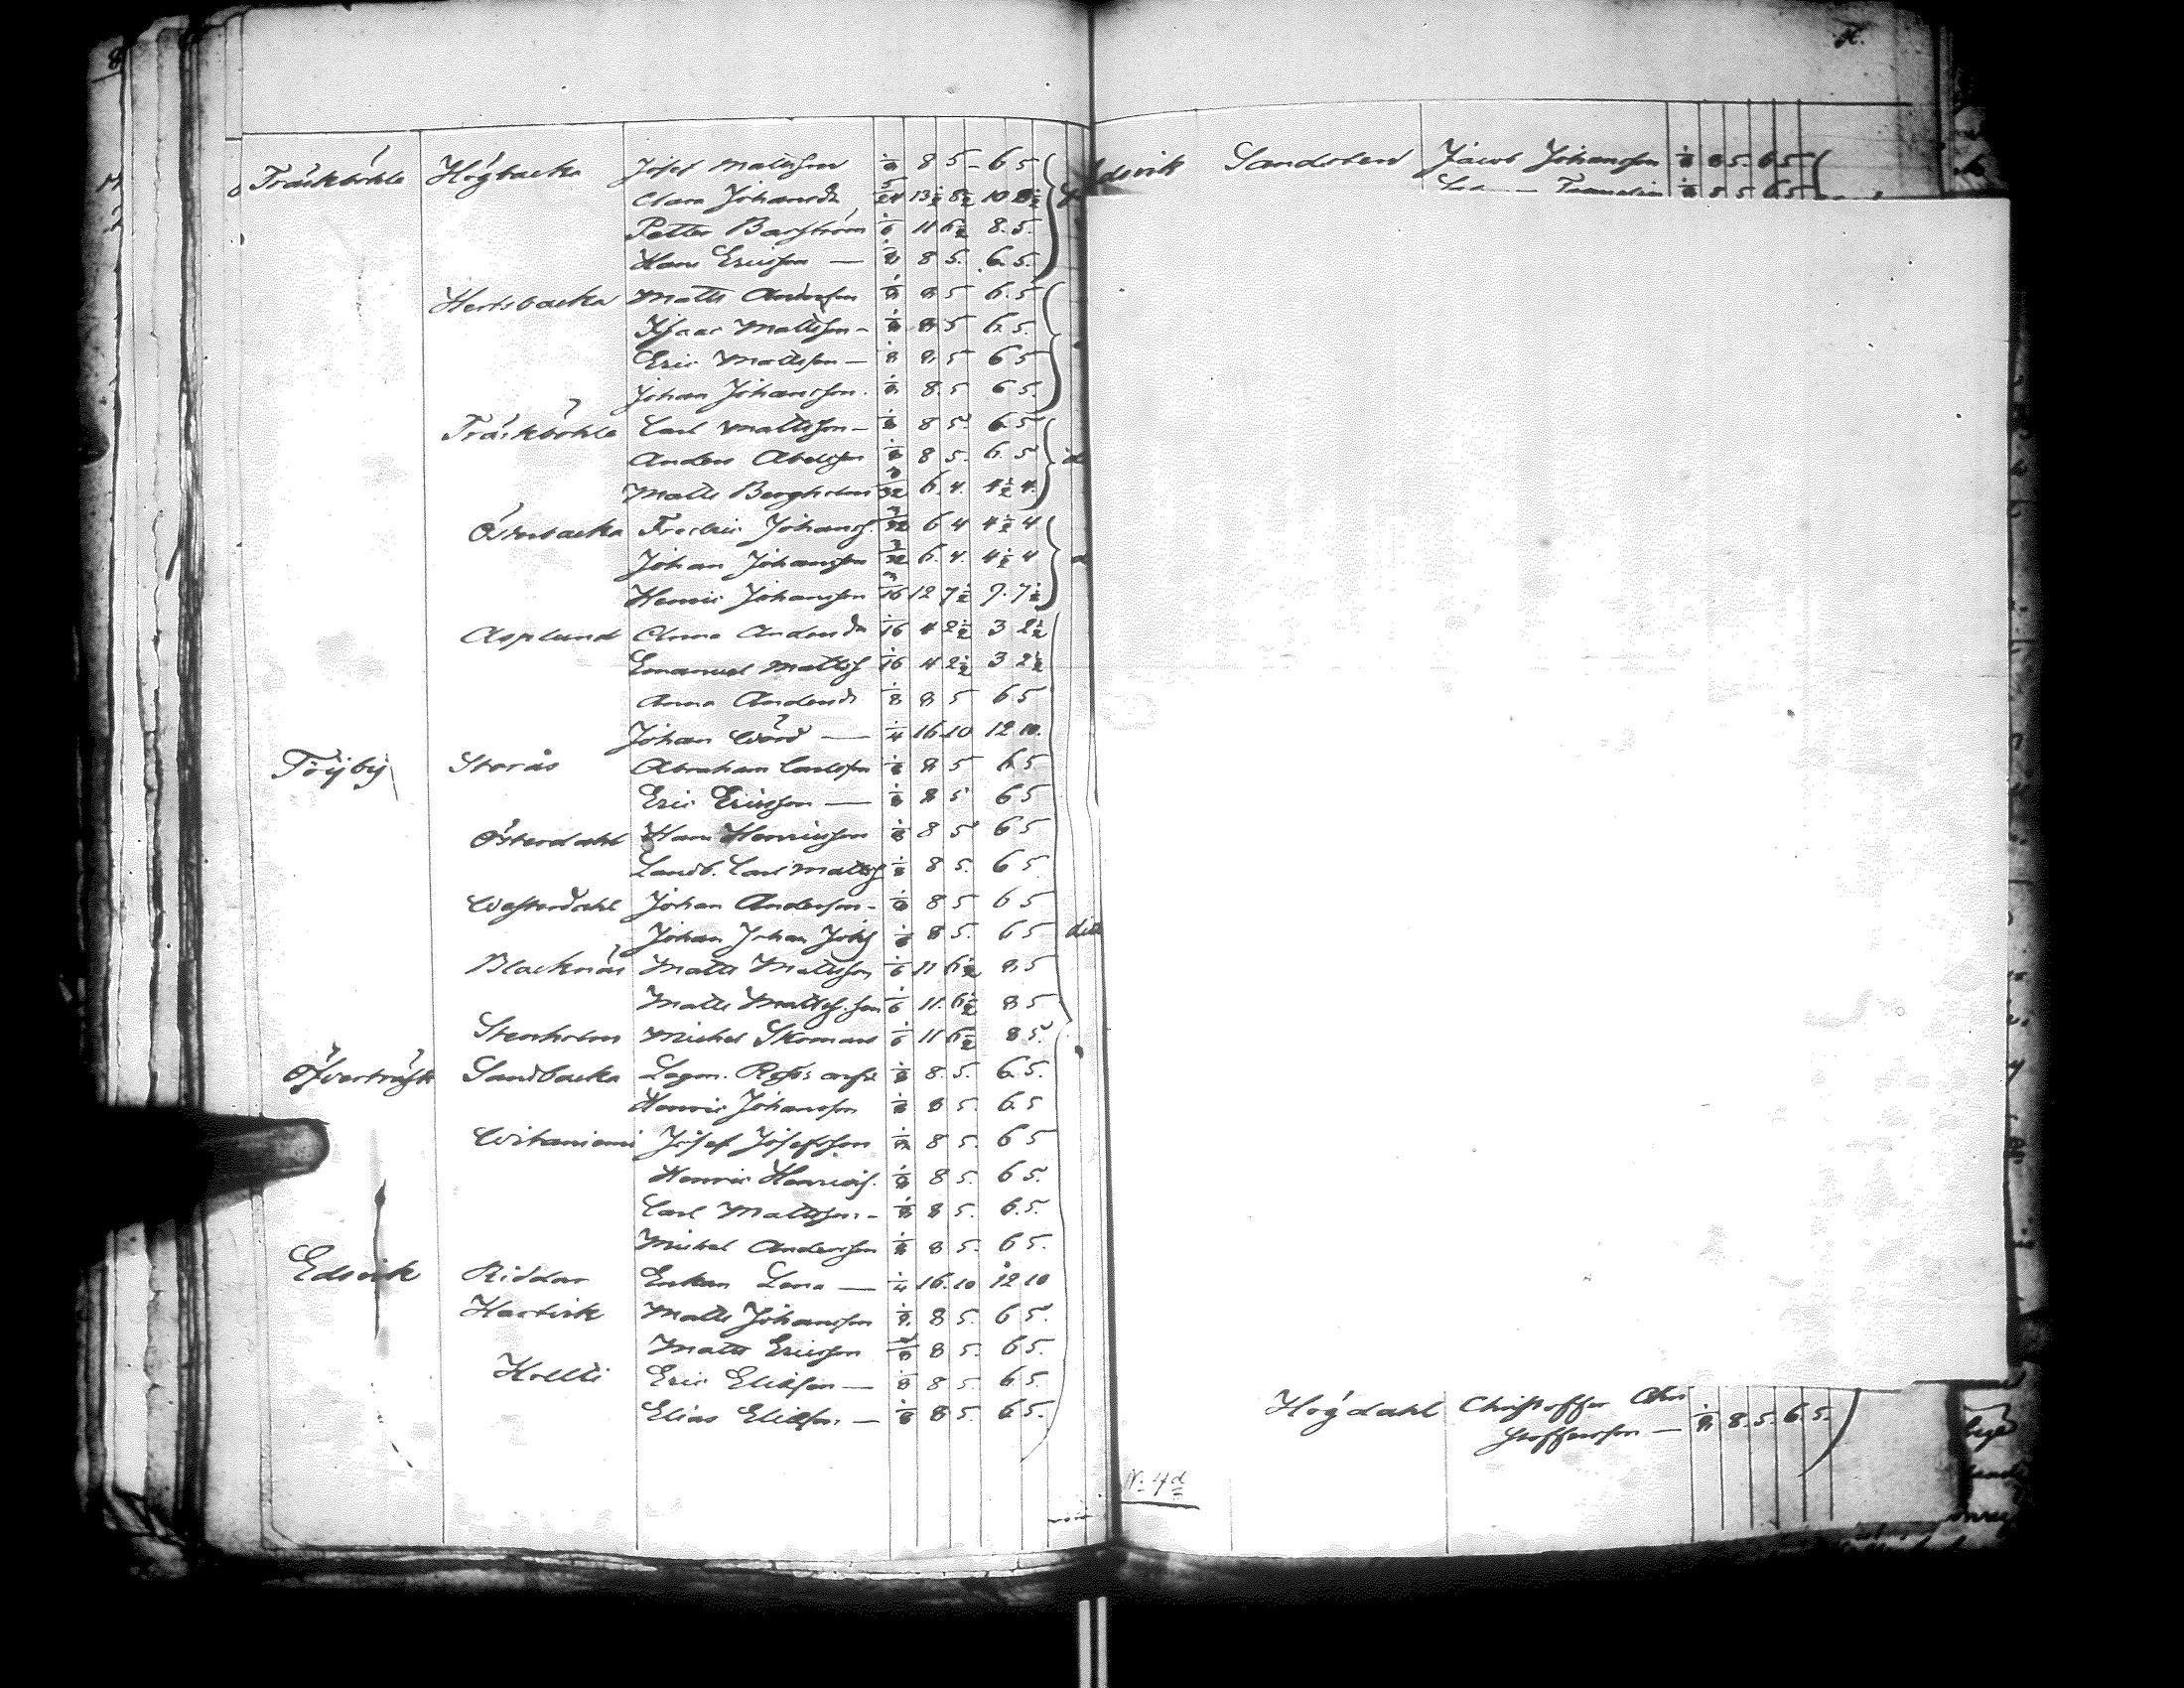 Träskböhle Högbacka Josef Mattsson 1/8 8 5 - 6 5
Clara Johansdr 5/24 13 1/2 8 1/2 10 8 1/2
Petter Barström 1/6 11 6 1/2 8. 5.
Hans Ericsson — 1/8 8 5. 6. 5.
Hertsbacka Matts Andersson 1/8 8 5 6. 5
Isaac Mattsson - 1/8 8 5 6. 5.
Eric Mattsson — 1/8 8. 5 6 5
Johan Johansson. 1/8 8. 5 6 5
Träskböhle Carl Mattsson - 1/8 8 5. 6. 5
Anders Abelsson 1/8 8 5. 6. 5
Matts Bergholm 3/32 6. 4. 4 1/2 4.
Österbacka Fredric Johanss. 3/32 6 4 4 1/2 4
Johan Johansson 3/32 6. 4. 4 1/2 4
Henric Johansson 3/16 12 7 1/2 9. 7 1/2
Asplund Anna Andersdr 1/16 4 2 1/2 3 2 1/2
Emanuel Mattss 1/16 4 2 1/2 3 2 1/2
Anna Andersdr 1/8 8 5 6 5
Johan Wörd — 1/4 16. 10 12 10.
Töjby Storås Abraham Carlsson 1/8 8 5 6 5
Eric Ericsson — 1/8 8 5 6 5
Österdahl Hans Henricsson 1/8 8 5 6 5
Landb. Carl Mattss 1/8 8 5. 6 5
Westerdahl Johan Andersson - 1/8 8 5 6 5
Johan Johan Johss 1/8 8 5. 6 5
Blacknäs Matts Mattsson 1/6 11 6 1/2 8. 5
Matts Mattss. son 1/6 11. 6 1/2 8 5
Stenholm Michel 1/6 11 6 1/2 8 5.
Öfverträsk Sandbacka Lagm. 1/8 8. 5. 6. 5.
Henric Johansson 1/8 8 5. 6. 5
Witaniemi Josef Josefsson 1/8 8 5. 6 5
Henric Henricss. 1/8 8 5. 6 5.
Carl Mattsson - 1/8 8 5. 6. 5.
Michel Andersson 1/8 8 5. 6 5.
Edsvik Riddar Enkan Lena — 1/4 16. 10 12 10
Hartvik Matts Johansson 1/8 8 5. 6 5.
Matts Ericsson 1/8 8 5. 6 5.
Holtti Eric Eliasson — 1/8 8 5. 6 5.
Elias Eliasson. — 1/8 8 5. 6 5.
dsvik Sandsten Jacob Johansson 1/8 8 5. 6. 5
1/8 8 5 6. 5
Högdahl Christoffer Chri
stoffersson — 1/8 8. 5. 6. 5.
N: 4 d